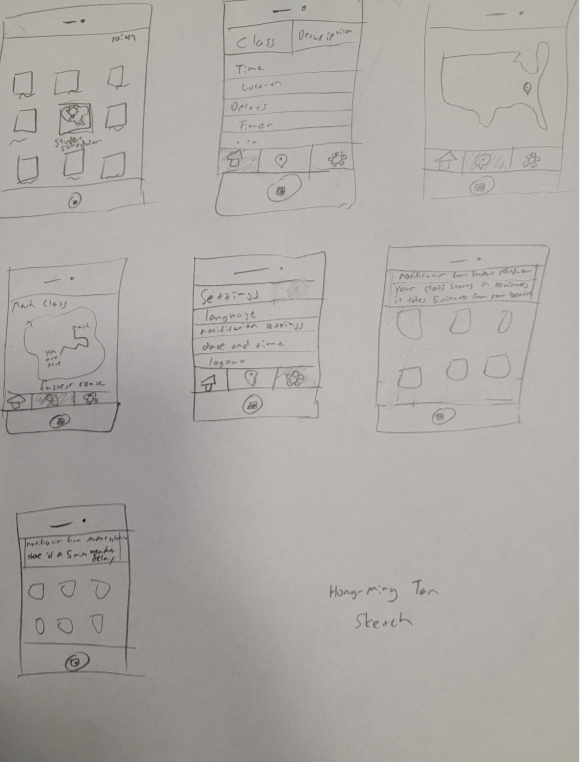 10:47
Student
Scheduler
Class
Description
Time
Location
Delays
Timer
...
Math Class
math
you
are
here
fastest route
Settings
language
notification settings
date and time
logout
notification from
your class starts in 10 minutes
it takes 5 minutes from your
notification from
there is a 5 min weather
delay
Hong-ming Tan
Sketch